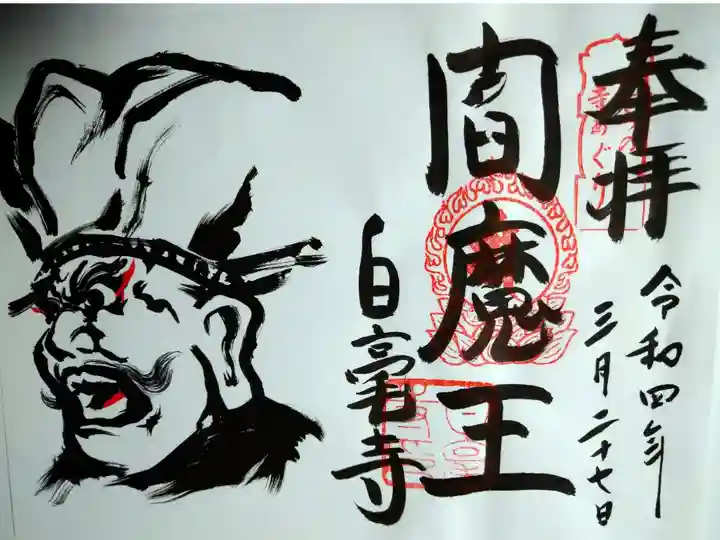 奉拝
令和四年
三月二十七日
閻魔王
白毫寺
寺めぐり